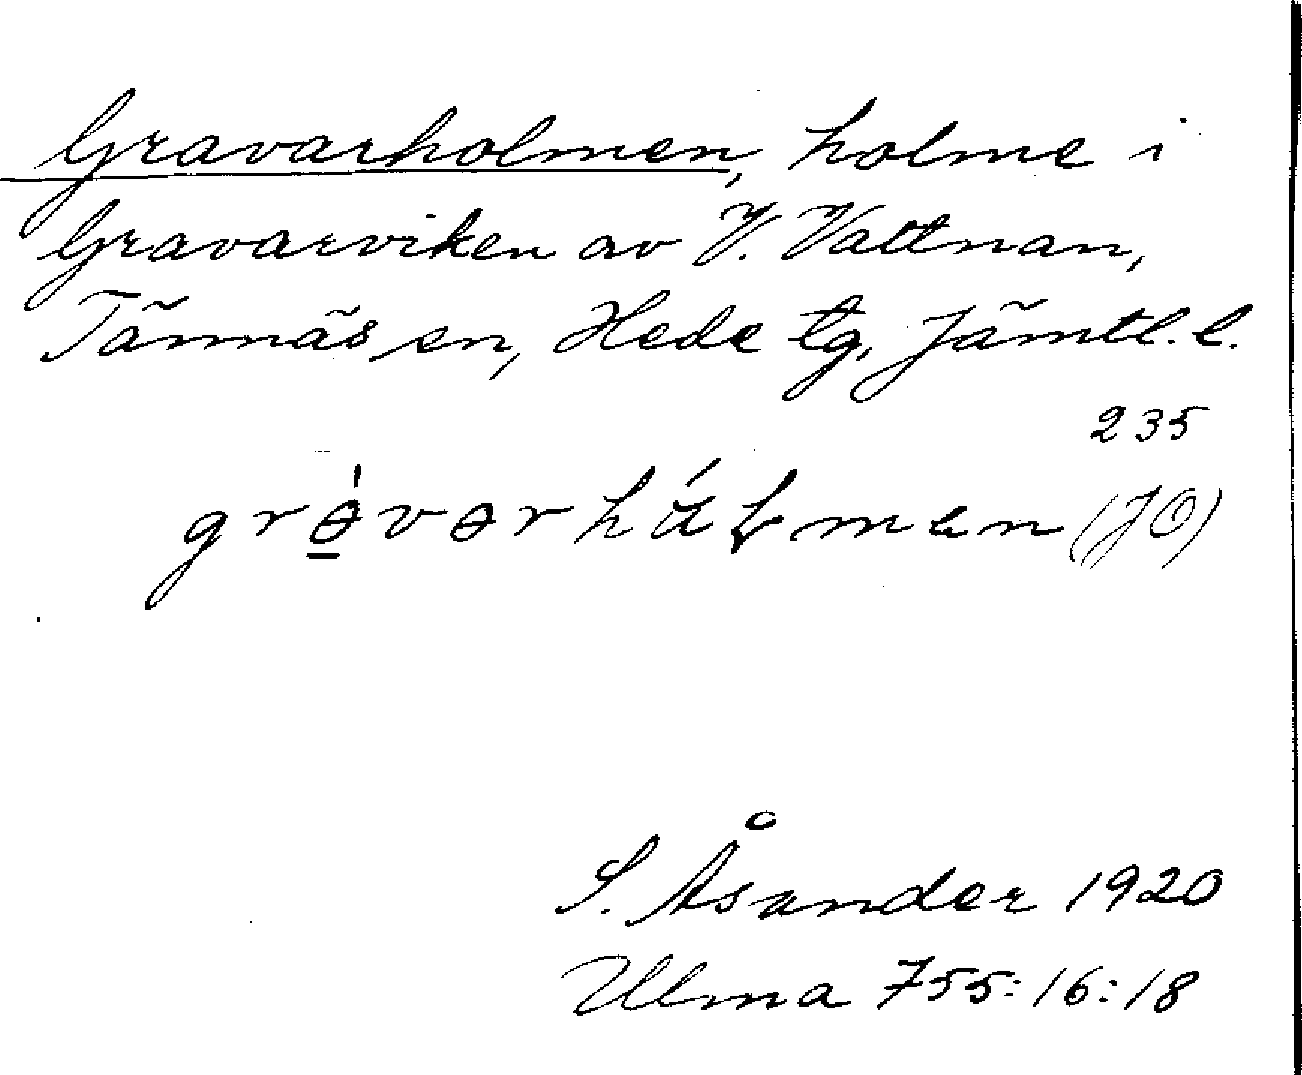 Gravarholmen, holme i
Gravarviken av V. Vattnan,
Tännäs sn, Hede tg, Jämtl. l.
235
(JO)
S. Åsander 1920
Ulma 755:16:18